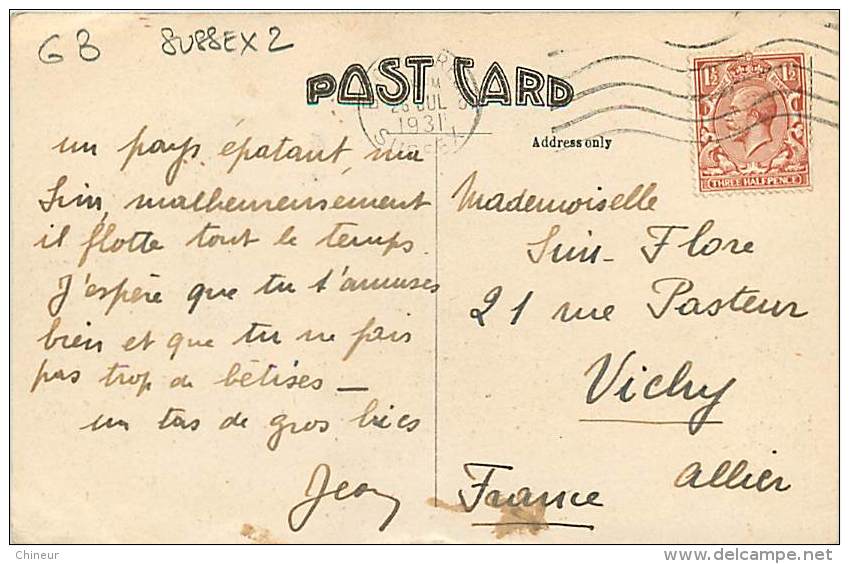 GB SUSSEX 2
POST CARD
28 JUL
1931
1½ 1½
THREE HALFPENCE
Address only
un pays épatant, ma
Sim, malheureusement
il flotte tout le temps.
J'espère que tu t'amuses
bien et que tu ne fais
pas trop de bêtises —
un tas de gros bécs
Jean
Mademoiselle
Flore
21 rue Pasteur
Vichy
Allier
France
Chineur
www.delcampe.net